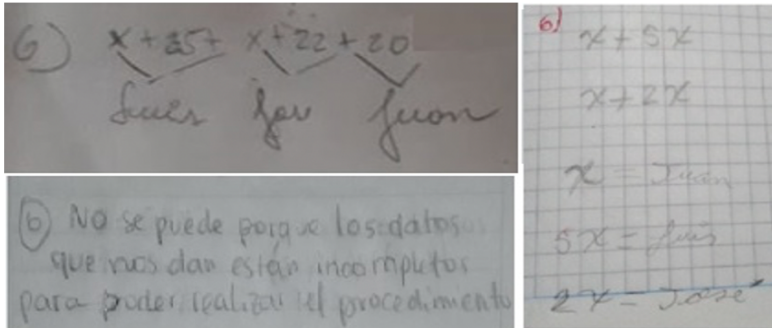 6) x + 25 + x + 22 + 20
Luis Jose Juan
6) No se puede porque los datos
que nos dan están incompletos
para poder realizar el procedimiento
6)
x + 5x
x + 2x
x = Juan
5x = Luis
2x = Jose